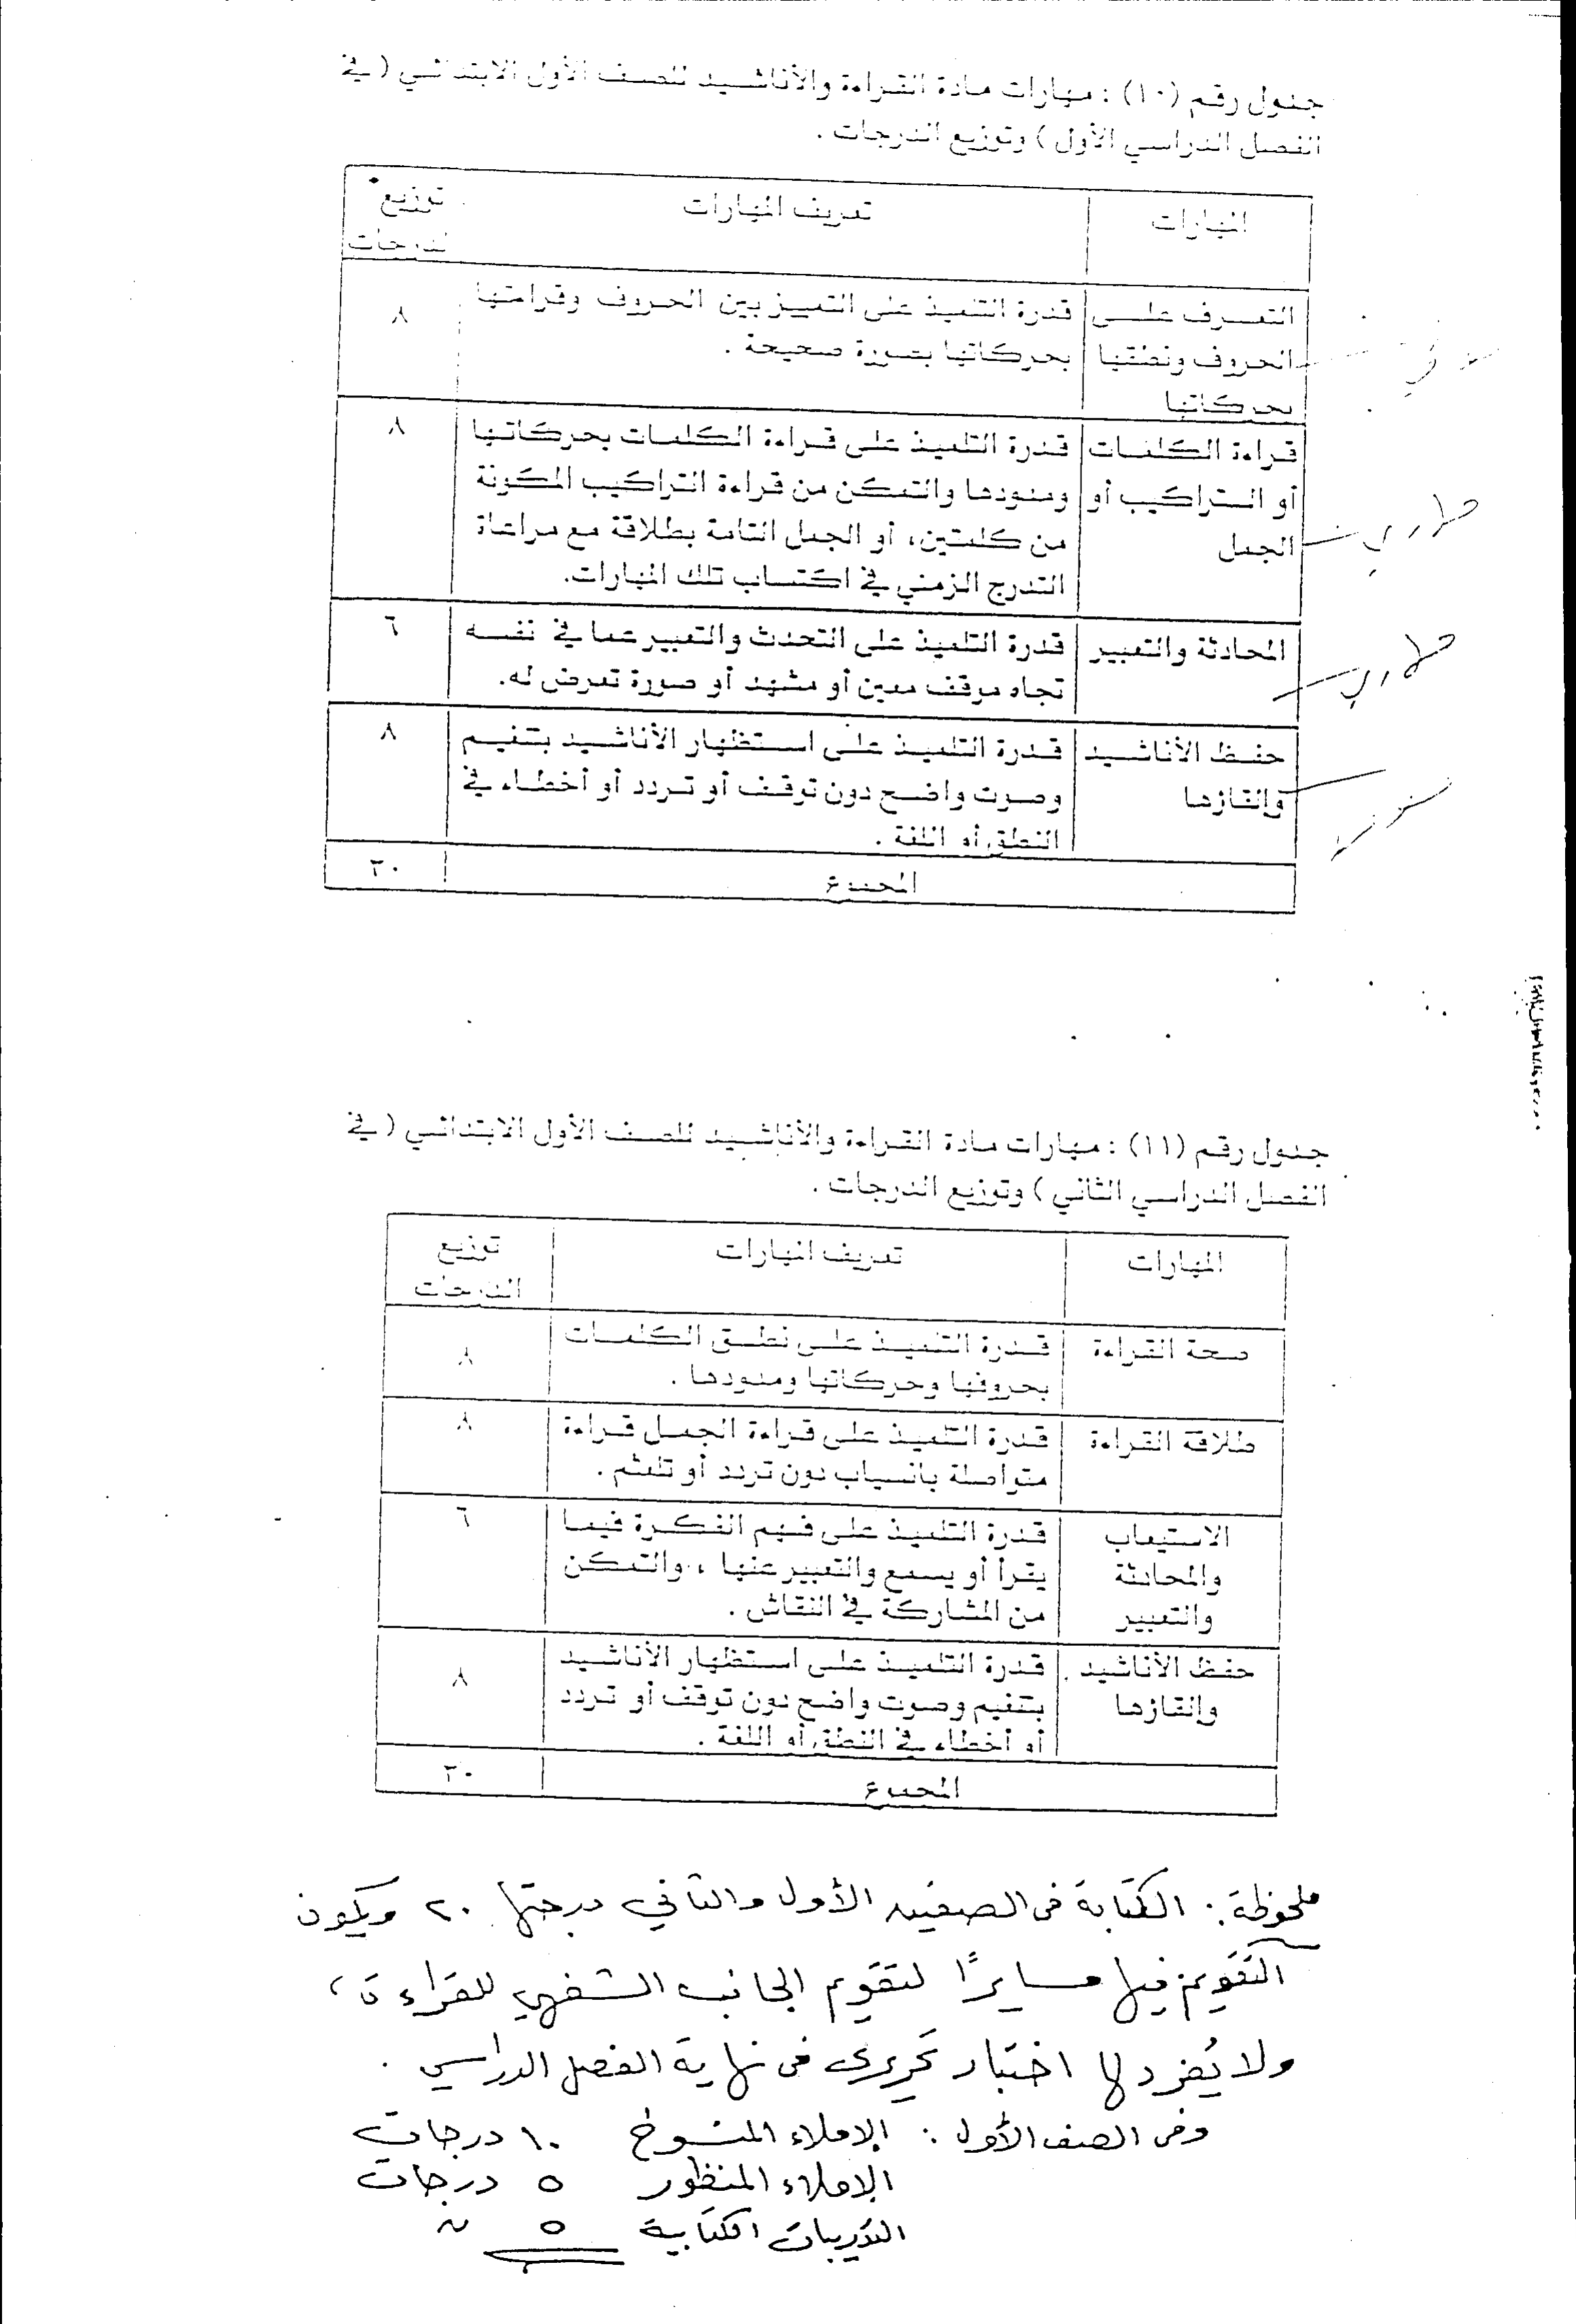 جدول رقم (١٠) : مهارات مادة القراءة والأناشيد للصف الأول الابتدائي (في
الفصل الدراسي الأول) وتوزيع الدرجات .
المهارات
تعريف المهارات
توزيع
الدرجات
التعرف على
الحروف ونطقها
بحركاتها
قدرة التلميذ على التمييز بين الحروف وقراءتها
بحركاتها بصورة صحيحة .
٨
قراءة الكلمات
أو التراكيب أو
الجمل
قدرة التلميذ على قراءة الكلمات بحركاتها
ومدودها والتمكن من قراءة التراكيب المكونة
من كلمتين، أو الجمل التامة بطلاقة مع مراعاة
التدرج الزمني في اكتساب تلك المهارات.
٨
المحادثة والتعبير
قدرة التلميذ على التحدث والتعبير عما في نفسه
تجاه موقف معين أو مشهد أو صورة تعرض له.
٦
حفظ الأناشيد
وإلقاؤها
قدرة التلميذ على استظهار الأناشيد بتنغيم
وصوت واضح دون توقف أو تردد أو أخطاء في
النطق أو اللغة .
٨
المجموع
٣٠
جدول رقم (١١) : مهارات مادة القراءة والأناشيد للصف الأول الابتدائي (في
الفصل الدراسي الثاني) وتوزيع الدرجات .
المهارات
تعريف المهارات
توزيع
الدرجات
صحة القراءة
قدرة التلميذ على نطق الكلمات
بحروفها وحركاتها ومدودها .
٨
طلاقة القراءة
قدرة التلميذ على قراءة الجمل قراءة
متواصلة بانسياب دون تردد أو تلعثم .
٨
الاستيعاب
والمحادثة
والتعبير
قدرة التلميذ على فهم الفكرة فيما
يقرأ أو يسمع والتعبير عنها ، والتمكن
من المشاركة في النقاش .
٦
حفظ الأناشيد
وإلقاؤها
قدرة التلميذ على استظهار الأناشيد
بتنغيم وصوت واضح دون توقف أو تردد
أو أخطاء في النطق أو اللغة .
٨
المجموع
٣٠
ملحوظة : الكتابة في الصفين الأول والثاني درجتها ٢٠ ويكون
التقويم فيها مسايرًا لتقويم الجانب الشفهي للقراءة ،
ولا يُفرد لها اختبار تحريري في نهاية الفصل الدراسي .
وفي الصف الأول : الإملاء المنسوخ ١٠ درجات
الإملاء المنظور ٥ درجات
التدريبات الكتابية ٥ 〃